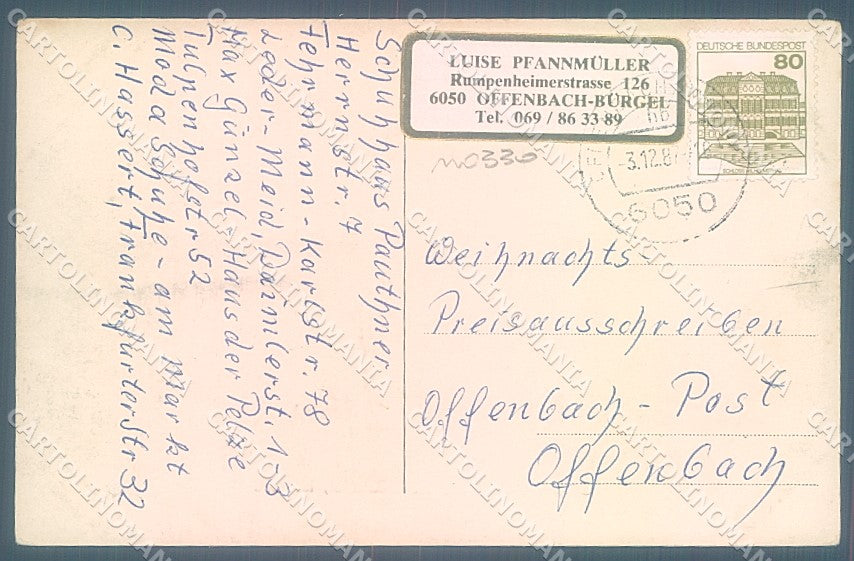 Schuhhaus Pauthner
Herrnstr. 7
Fehrmann-Karlstr. 78
Leder-Meid, Daimlerst. 1-3
Max Günzel, Haus der Pelze
Tulpenhofstr 52
Moda Schuhe - am Markt
C. Hassert, Frankfurter Str 32
LUISE PFANNMÜLLER
Rumpenheimerstrasse 126
6050 OFFENBACH-BÜRGEL
Tel. 069 / 86 33 89
DEUTSCHE BUNDESPOST
80
3.12.87
6050
Weihnachts-
Preisausschreiben
Offenbach - Post
Offenbach
CARTOLINOMANIA